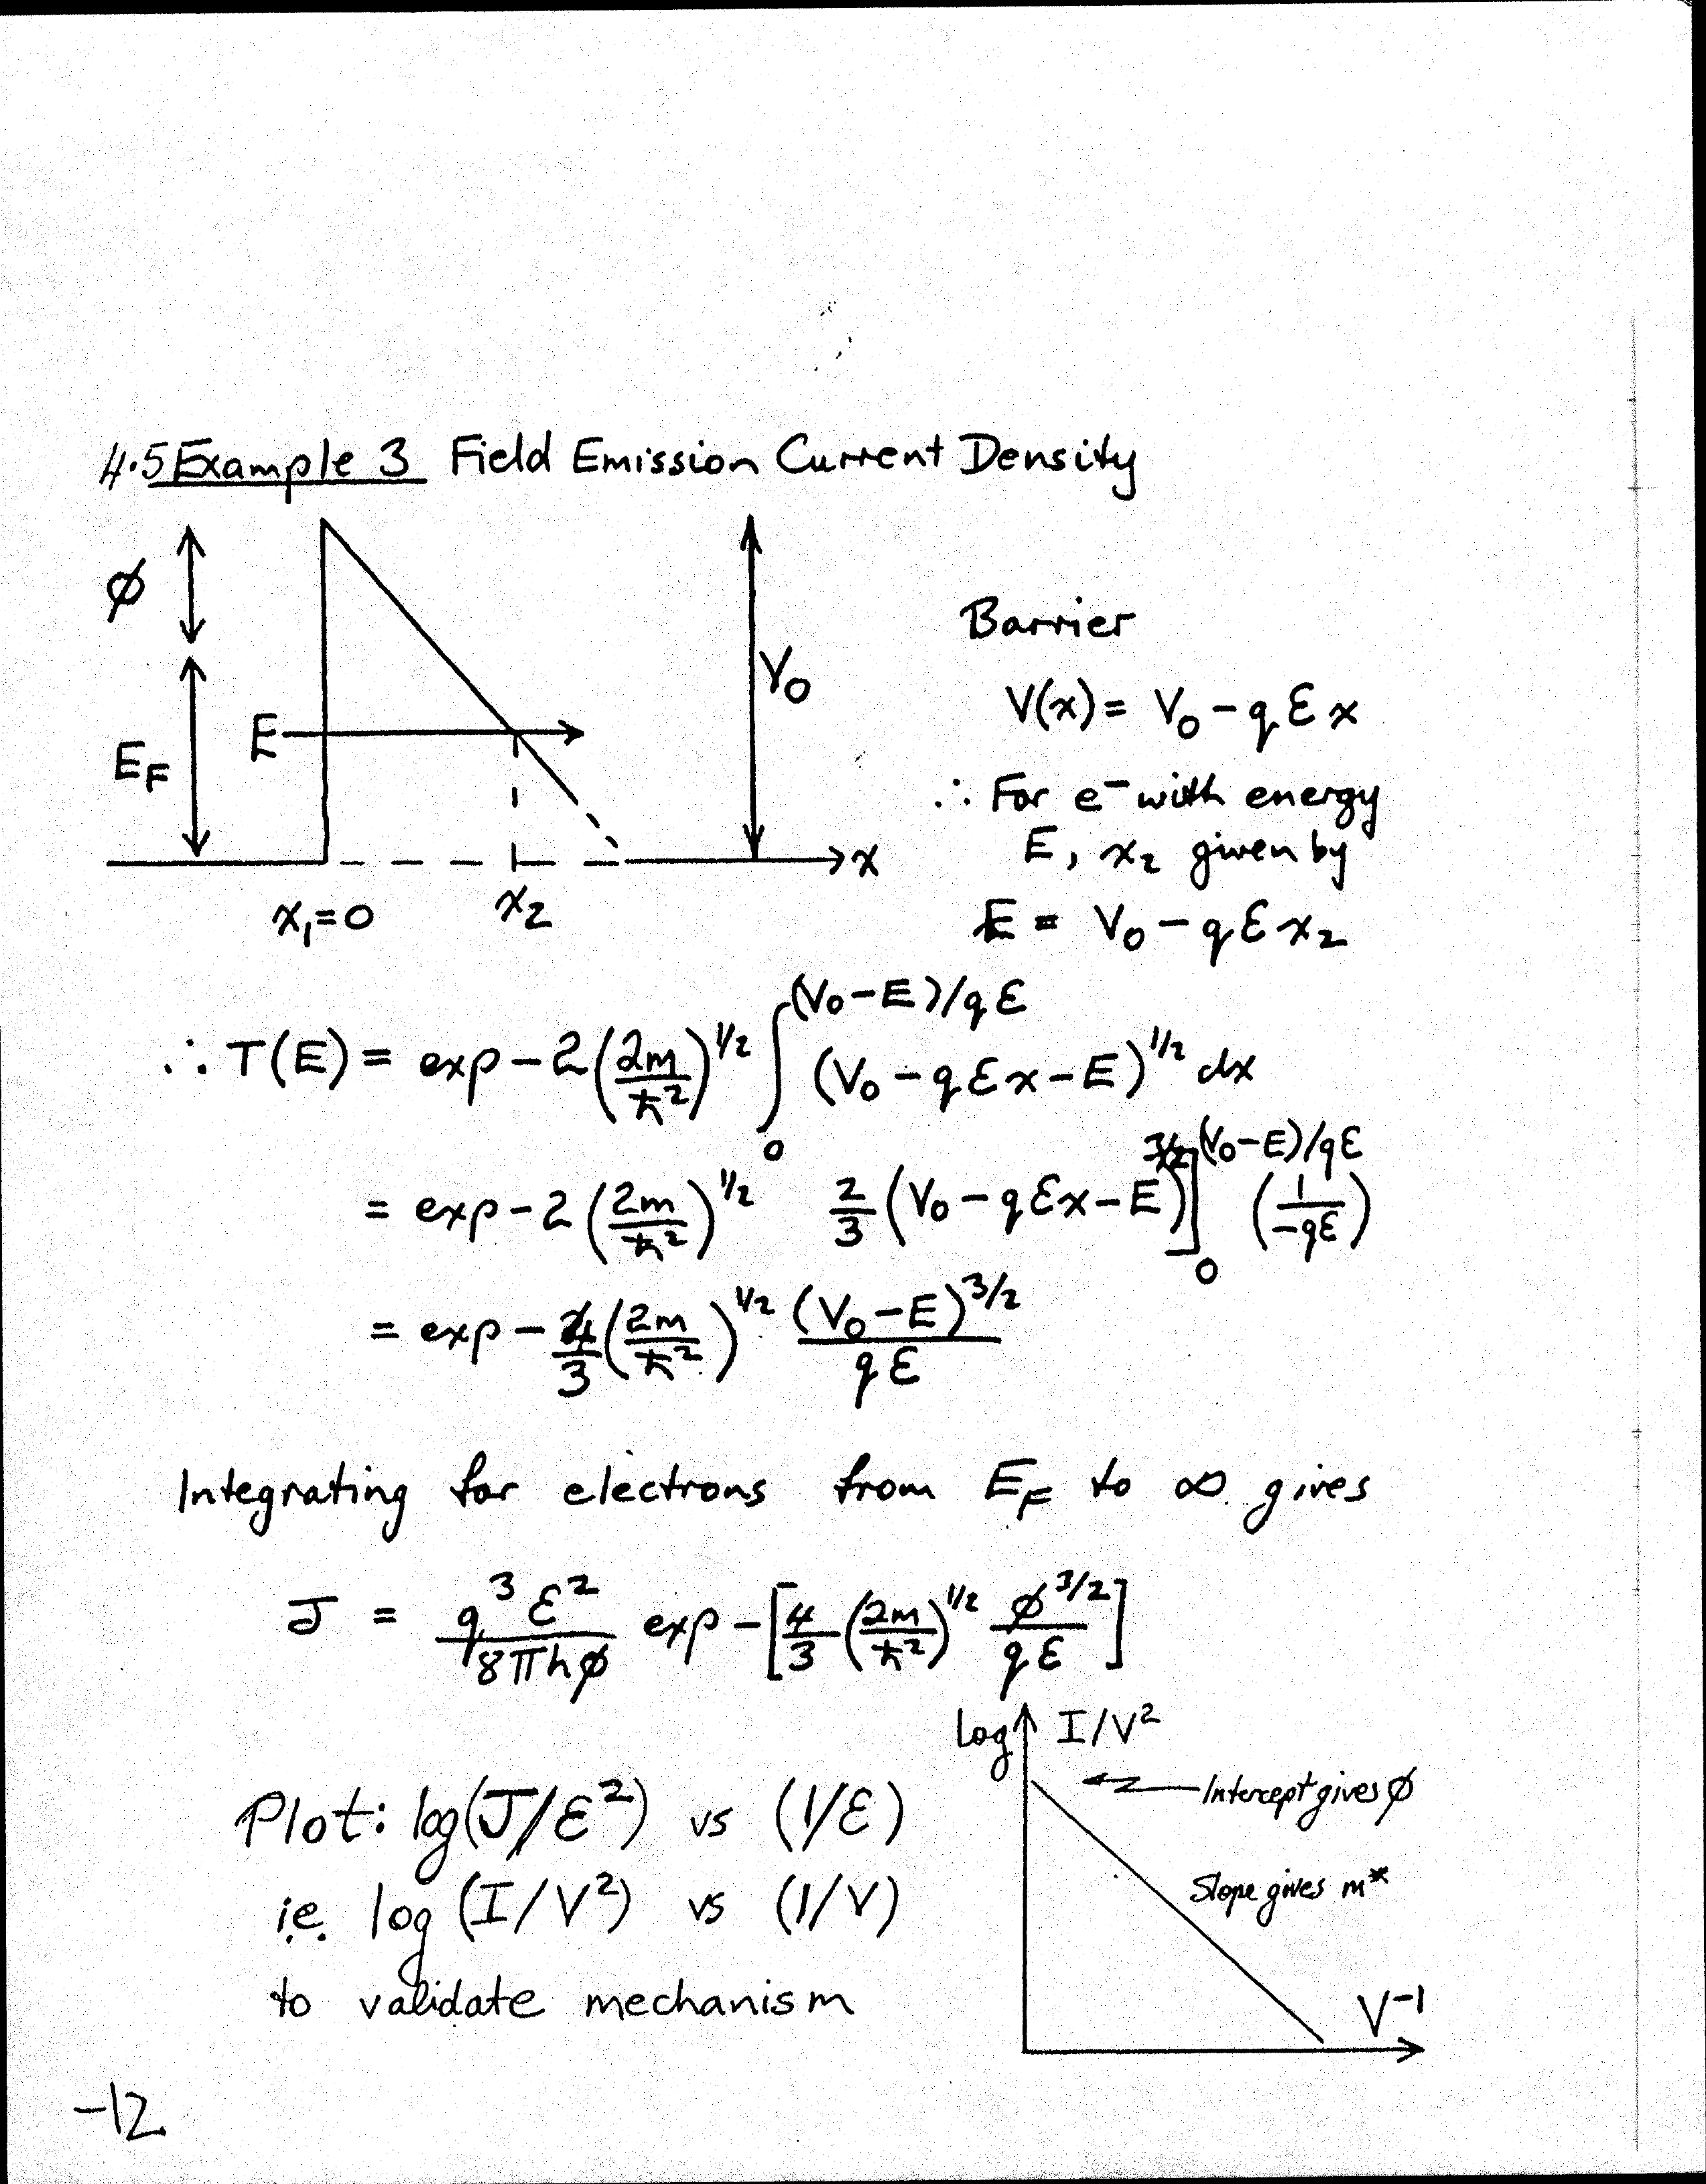 4.5 Example 3 Field Emission Current Density
ϕ
E_F
E
V₀
x
x₁=0
x₂
Barrier
V(x) = V₀ - qℰx
∴ For e⁻ with energy
E, x₂ given by
E = V₀ - qℰx₂
∴ T(E) = exp -2 (2m/ħ²)^{1/2} ∫₀^{(V₀-E)/qℰ} (V₀ - qℰx - E)^{1/2} dx
= exp -2 (2m/ħ²)^{1/2} 2/3 (V₀ - qℰx - E)^{3/2} ]₀^{(V₀-E)/qℰ} (1/-qℰ)
= exp - 4/3 (2m/ħ²)^{1/2} (V₀-E)^{3/2}/qℰ
Integrating for electrons from E_F to ∞ gives
J = q³ℰ²/8πhϕ exp -[4/3 (2m/ħ²)^{1/2} ϕ^{3/2}/qℰ]
Plot: log(J/ℰ²) vs (1/ℰ)
i.e. log (I/V²) vs (1/V)
to validate mechanism
log I/V²
Intercept gives ϕ
Slope gives m*
V⁻¹
-12